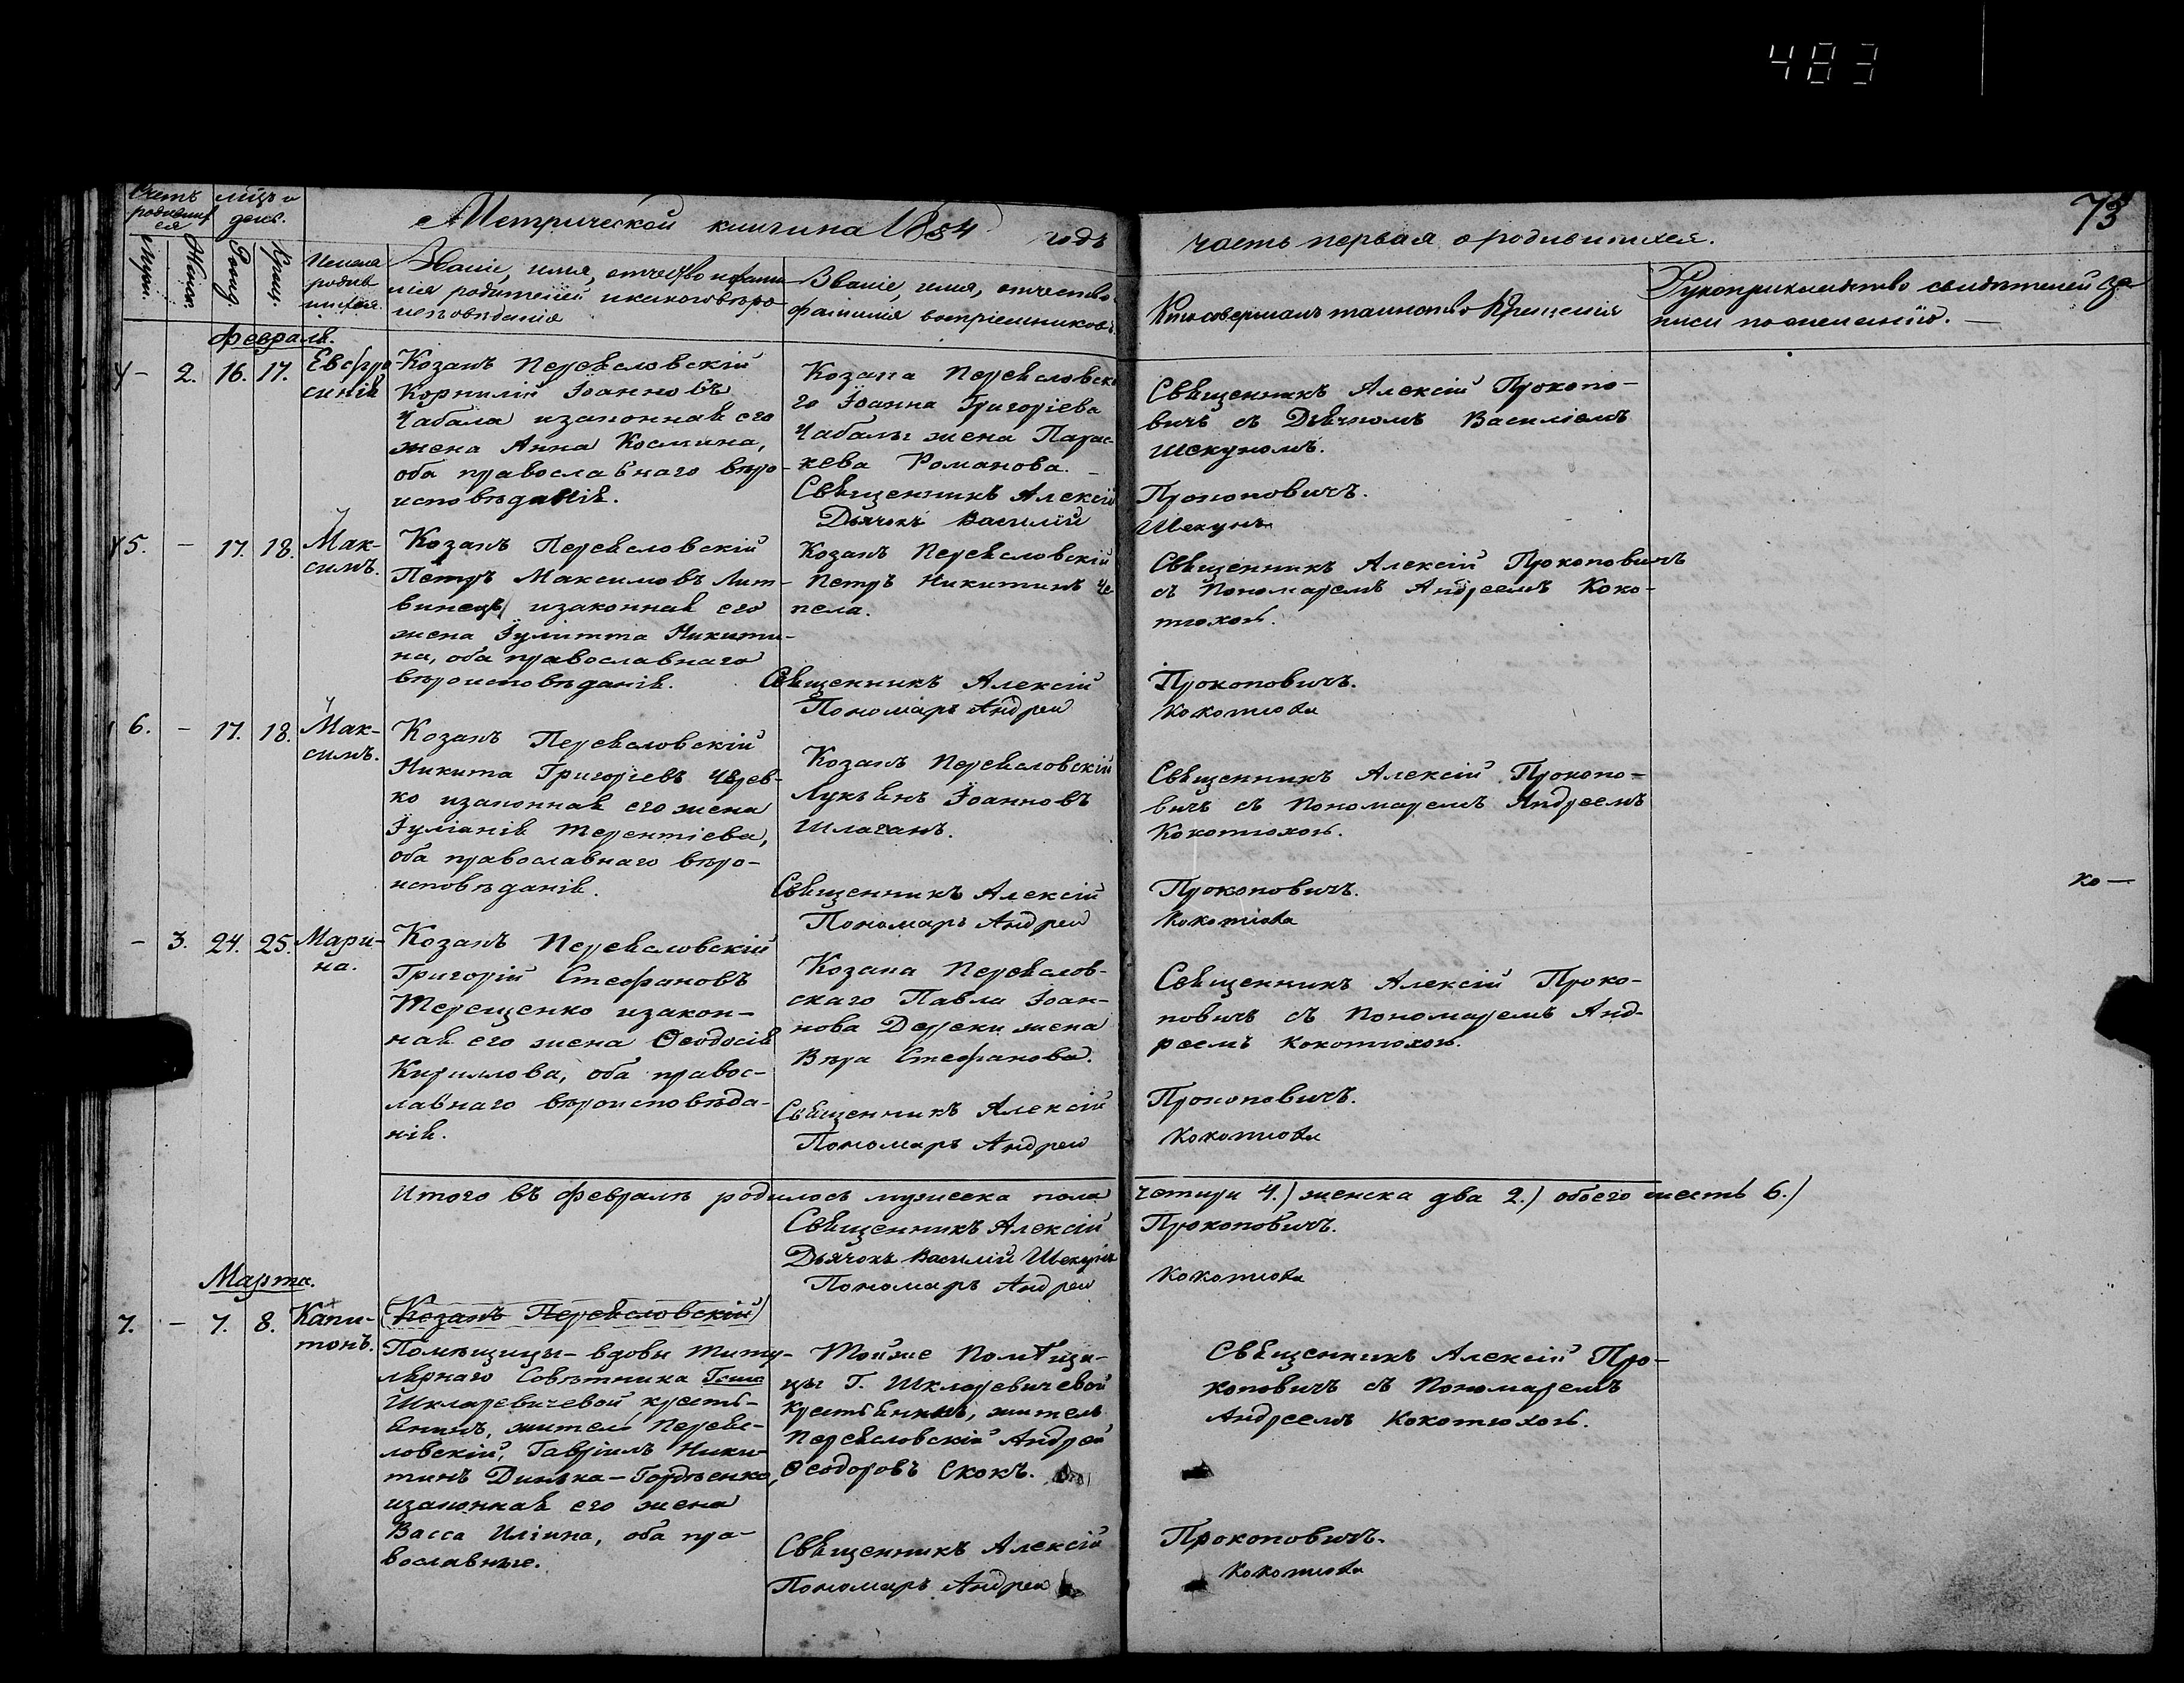 483
73
Счетъ родившихся
мѣцъ и день.
Метрической книги на 1854 годъ
часть первая о родившихся.
Муж.
Женск.
Рожд.
Крещ.
Имена родившихся.
Званіе, имя, отчество и фами-
лія родителей и какого вѣро-
исповѣданія
Званіе, имя, отчество
фамилія воспріемниковъ.
Кто совершалъ таинство Крещенія
Рукоприкладство свидѣтелей за-
писи по желанію. —
Февраля.
— 2. 16. 17. Евфро
синія
Козакъ Переясловскій
Корнилій Іоанновъ
Чабала изаконная его
жена Анна Космина,
оба православнаго вѣро-
исповѣданія.
Козака Переясловска
го Іоанна Григоріева
Чабалы жена Парас-
кева Романова. —
Священникъ Алексій
Дьячокъ Василій
Священникъ Алексій Прокопо-
вичъ съ Дьячкомъ Василіемъ
Шекуномъ.
Прокоповичъ.
Шекунъ
5. — 17. 18. Мак-
симъ.
Козакъ Переясловскій
Петръ Максимовъ Лит-
винецъ изаконная его
жена Іулитта Никити-
на, оба православнаго
вѣроисповѣданія.
Козакъ Переясловскій
Петръ Никитинъ Че
пела.
Священникъ Алексій
Пономарь Андрей
Священникъ Алексій Прокоповичъ
съ Пономаремъ Андреемъ Коко-
тюхою.
Прокоповичъ.
Кокотюха
6. — 17. 18. Мак-
симъ.
Козакъ Переясловскій
Никита Григоріевъ Черев-
ко изаконная его жена
Іуліанія Терентіева,
оба православнаго вѣро-
исповѣданія.
Козакъ Переясловскій
Лукьянъ Іоанновъ
Шлаганъ.
Священникъ Алексій
Пономарь Андрей
Священникъ Алексій Прокопо-
вичъ съ Пономаремъ Андреемъ
Кокотюхою.
Прокоповичъ.
Кокотюха
ко —
— 3. 24. 25. Мари-
на.
Козакъ Переясловскій
Григорій Стефановъ
Терещенко изакон-
ная его жена Ѳеодосія
Кириллова, оба правос-
лавнаго вѣроисповѣда-
нія.
Козака Переяслов-
скаго Павла Іоан-
нова Дереки жена
Вѣра Стефанова.
Священникъ Алексій
Пономарь Андрей
Священникъ Алексій Проко-
повичъ съ Пономаремъ Анд-
реемъ Кокотюхою.
Прокоповичъ.
Кокотюха
Итого въ Февралѣ родилось мужеска пола четыри 4.) женска два 2.) обоего шесть 6.)
Священникъ Алексій Прокоповичъ.
Дьячокъ Василій Шекунъ
Пономарь Андрей Кокотюха
Марта.
7. — 7. 8. Капи-
тонъ.
(Козакъ Переясловскій)
Помѣщицы-вдовы Титу-
лярнаго Совѣтника
Шкляревичевой кресть-
янинъ, жители Переяс-
ловскій, Гавріилъ Ники-
тинъ Динька-Гордѣенко,
изаконная его жена
Васса Иліина, оба пра-
вославные.
Тойже Помѣщи-
цы Г. Шкляревичевой
крестьянинъ, житель
Переясловскій Андрей
Ѳеодоровъ Скокъ.
Священникъ Алексій
Пономарь Андрей
Священникъ Алексій Про-
коповичъ съ Пономаремъ
Андреемъ Кокотюхою.
Прокоповичъ.
Кокотюха